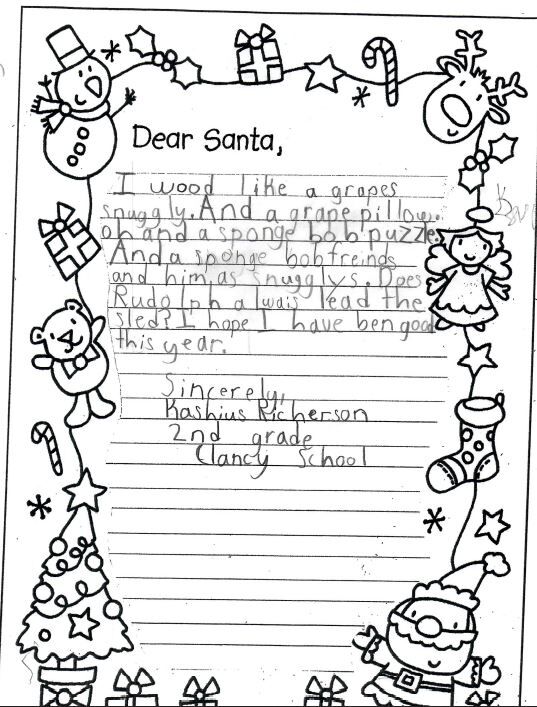 Dear Santa,
I wood like a grapes
snuggly. And a grape pillow.
oh and a sponge bob puzzle.
And a sponge bob freinds
and him as snugglys. Does
Rudolph alwais lead the
sled? I hope I have ben good
this year.
Sincerely,
Kashius Richerson
2nd grade
Clancy School